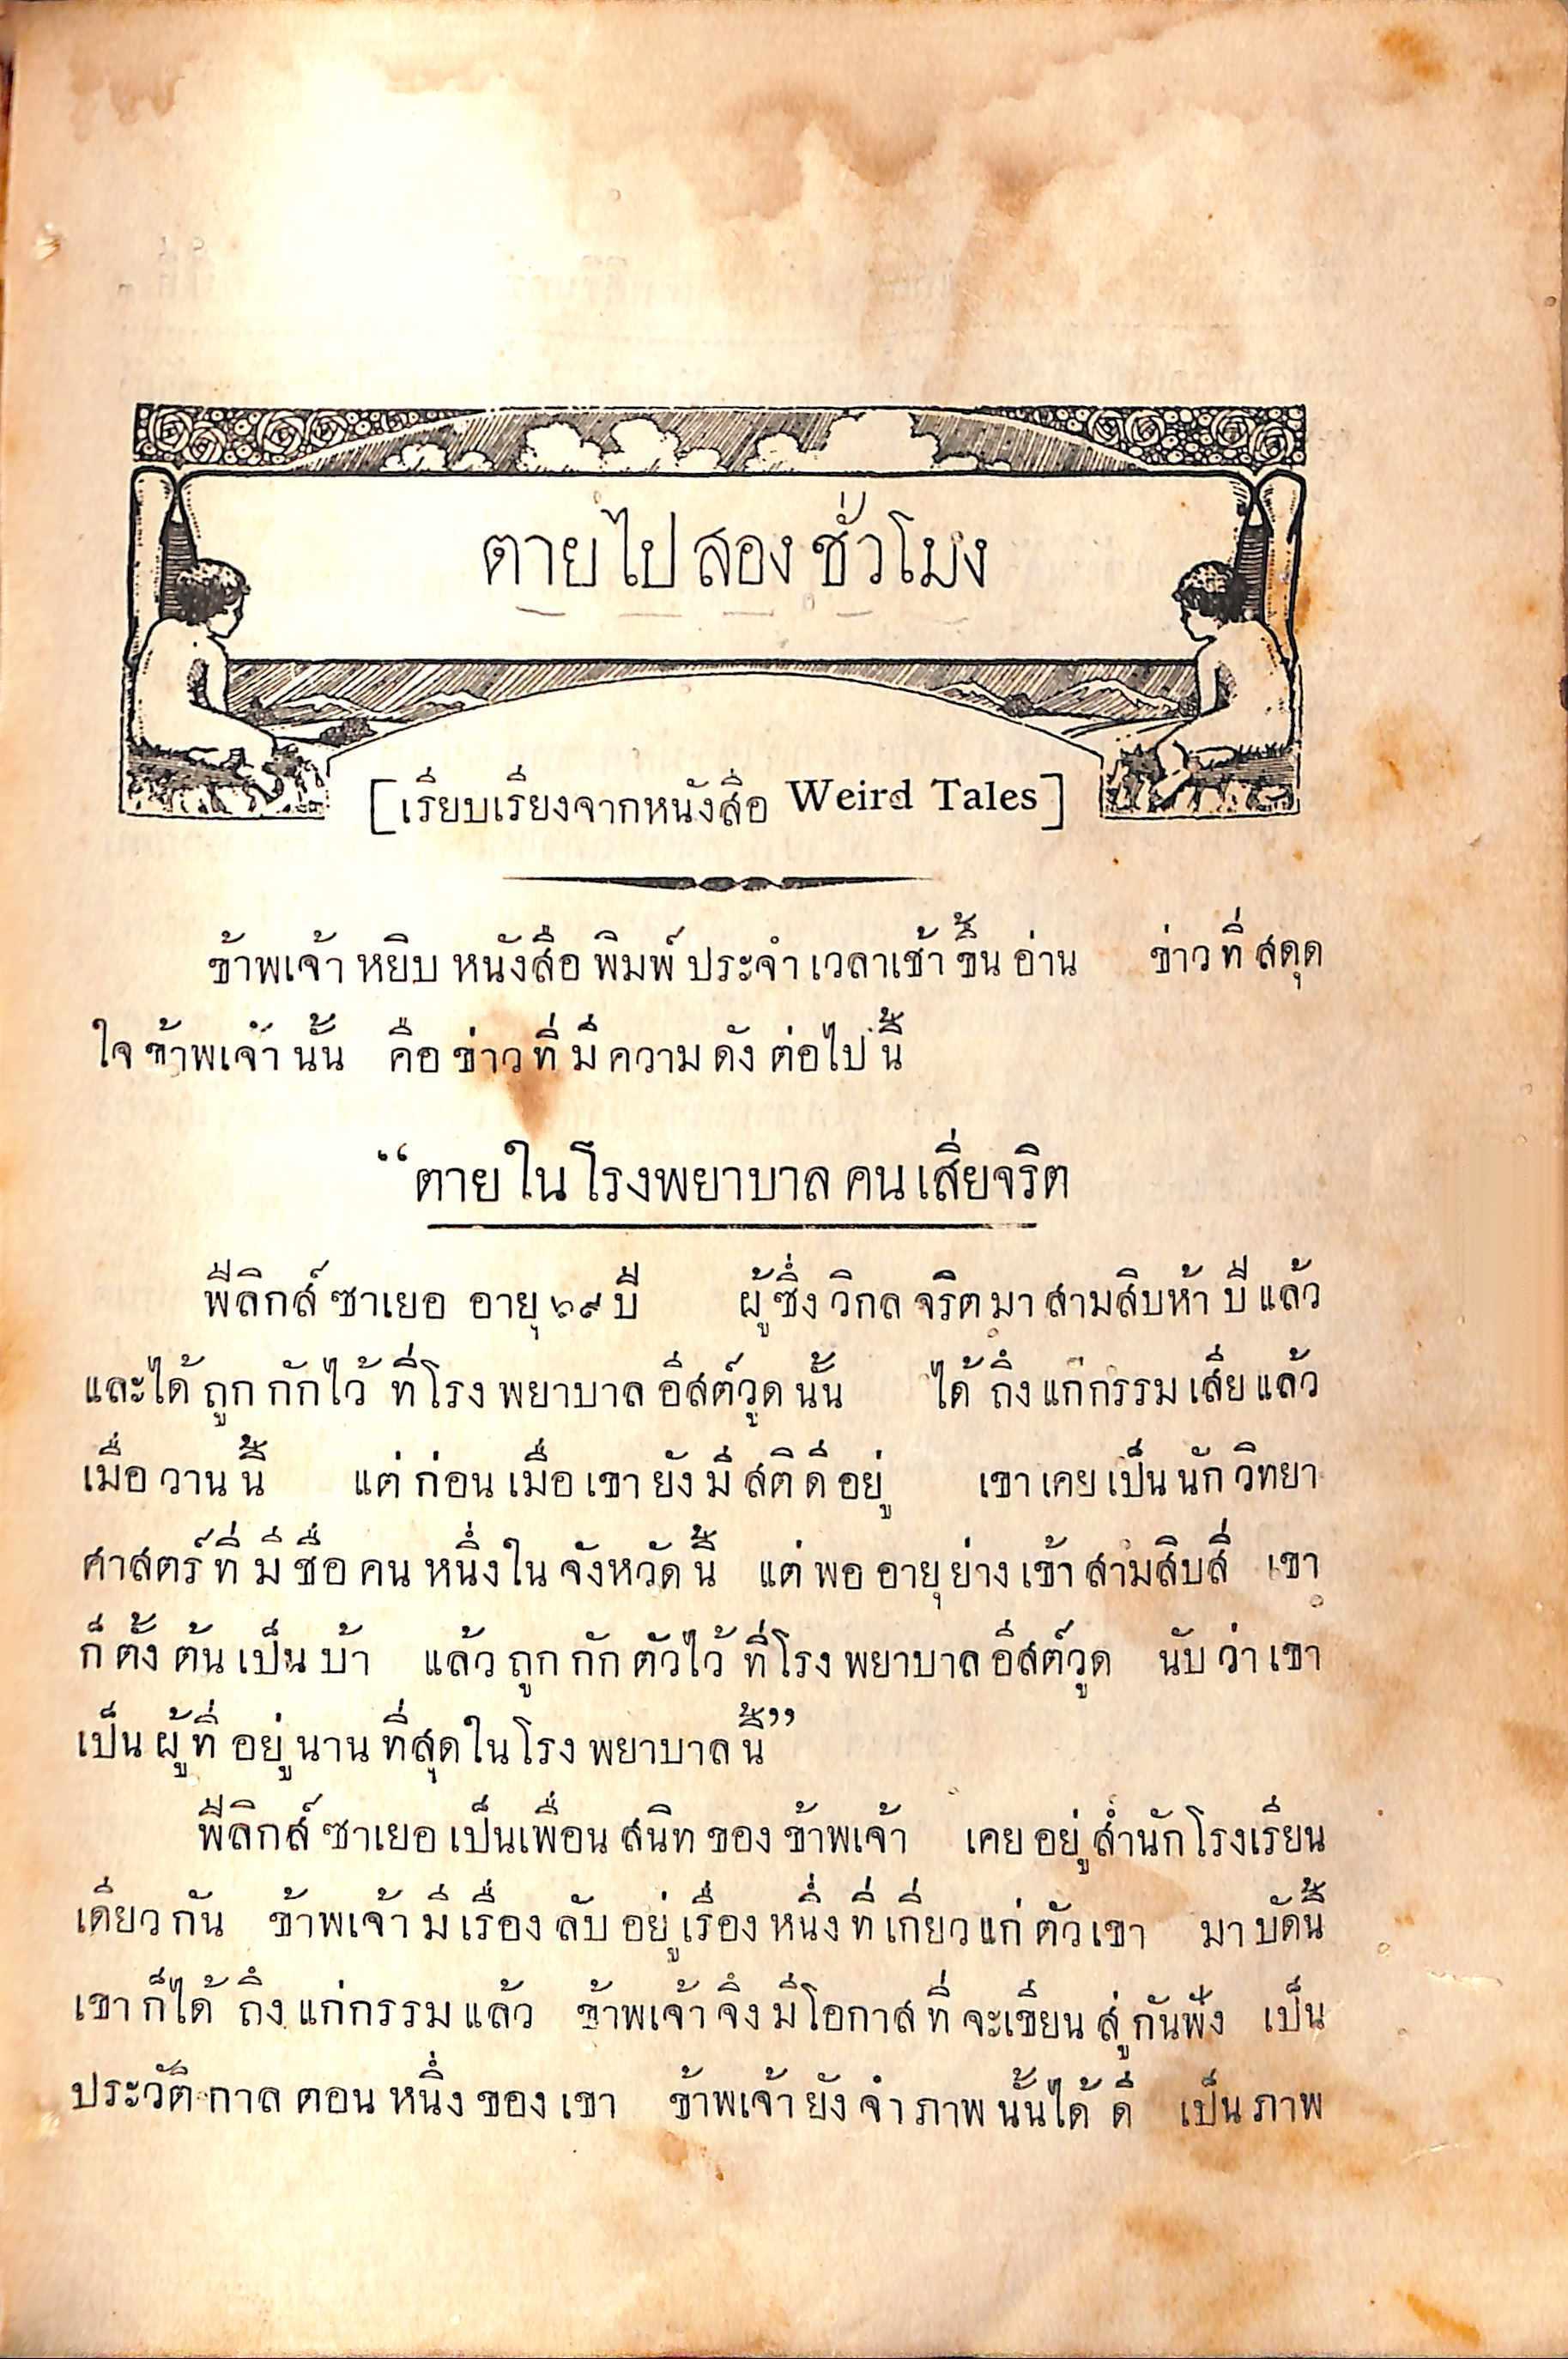 ตายไปสองชั่วโมง
[เรียบเรียงจากหนังสือ Weird Tales]
ข้าพเจ้าหยิบหนังสือพิมพ์ประจำเวลาเช้าขึ้นอ่าน ข่าวที่สดุด
ใจข้าพเจ้านั้น คือข่าวที่มีความดังต่อไปนี้
“ตายในโรงพยาบาลคนเสียจริต
ฟีลิกส์ ซาเยอ อายุ ๖๙ ปี ผู้ซึ่งวิกลจริตมาสามสิบห้าปีแล้ว
และได้ถูกกักไว้ที่โรงพยาบาลอีสต์วูดนั้น ได้ถึงแก่กรรมเสียแล้ว
เมื่อวานนี้ แต่ก่อนเมื่อเขายังมีสติดีอยู่ เขาเคยเป็นนักวิทยา
ศาสตร์ที่มีชื่อคนหนึ่งในจังหวัดนี้ แต่พออายุย่างเข้าสามสิบสี่ เขา
ก็ตั้งต้นเป็นบ้า แล้วถูกกักตัวไว้ที่โรงพยาบาลอีสต์วูด นับว่าเขา
เป็นผู้ที่อยู่นานที่สุดในโรงพยาบาลนี้”
ฟีลิกส์ ซาเยอ เป็นเพื่อนสนิทของข้าพเจ้า เคยอยู่สำนักโรงเรียน
เดียวกัน ข้าพเจ้ามีเรื่องลับอยู่เรื่องหนึ่งที่เกี่ยวแก่ตัวเขา มาบัดนี้
เขาก็ได้ถึงแก่กรรมแล้ว ข้าพเจ้าจึงมีโอกาสที่จะเขียนสู่กันฟัง เป็น
ประวัติกาลตอนหนึ่งของเขา ข้าพเจ้ายังจำภาพนั้นได้ดี เป็นภาพ